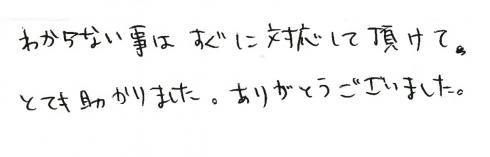 わからない事は すぐに対応して頂けて。
とても助かりました。ありがとうございました。